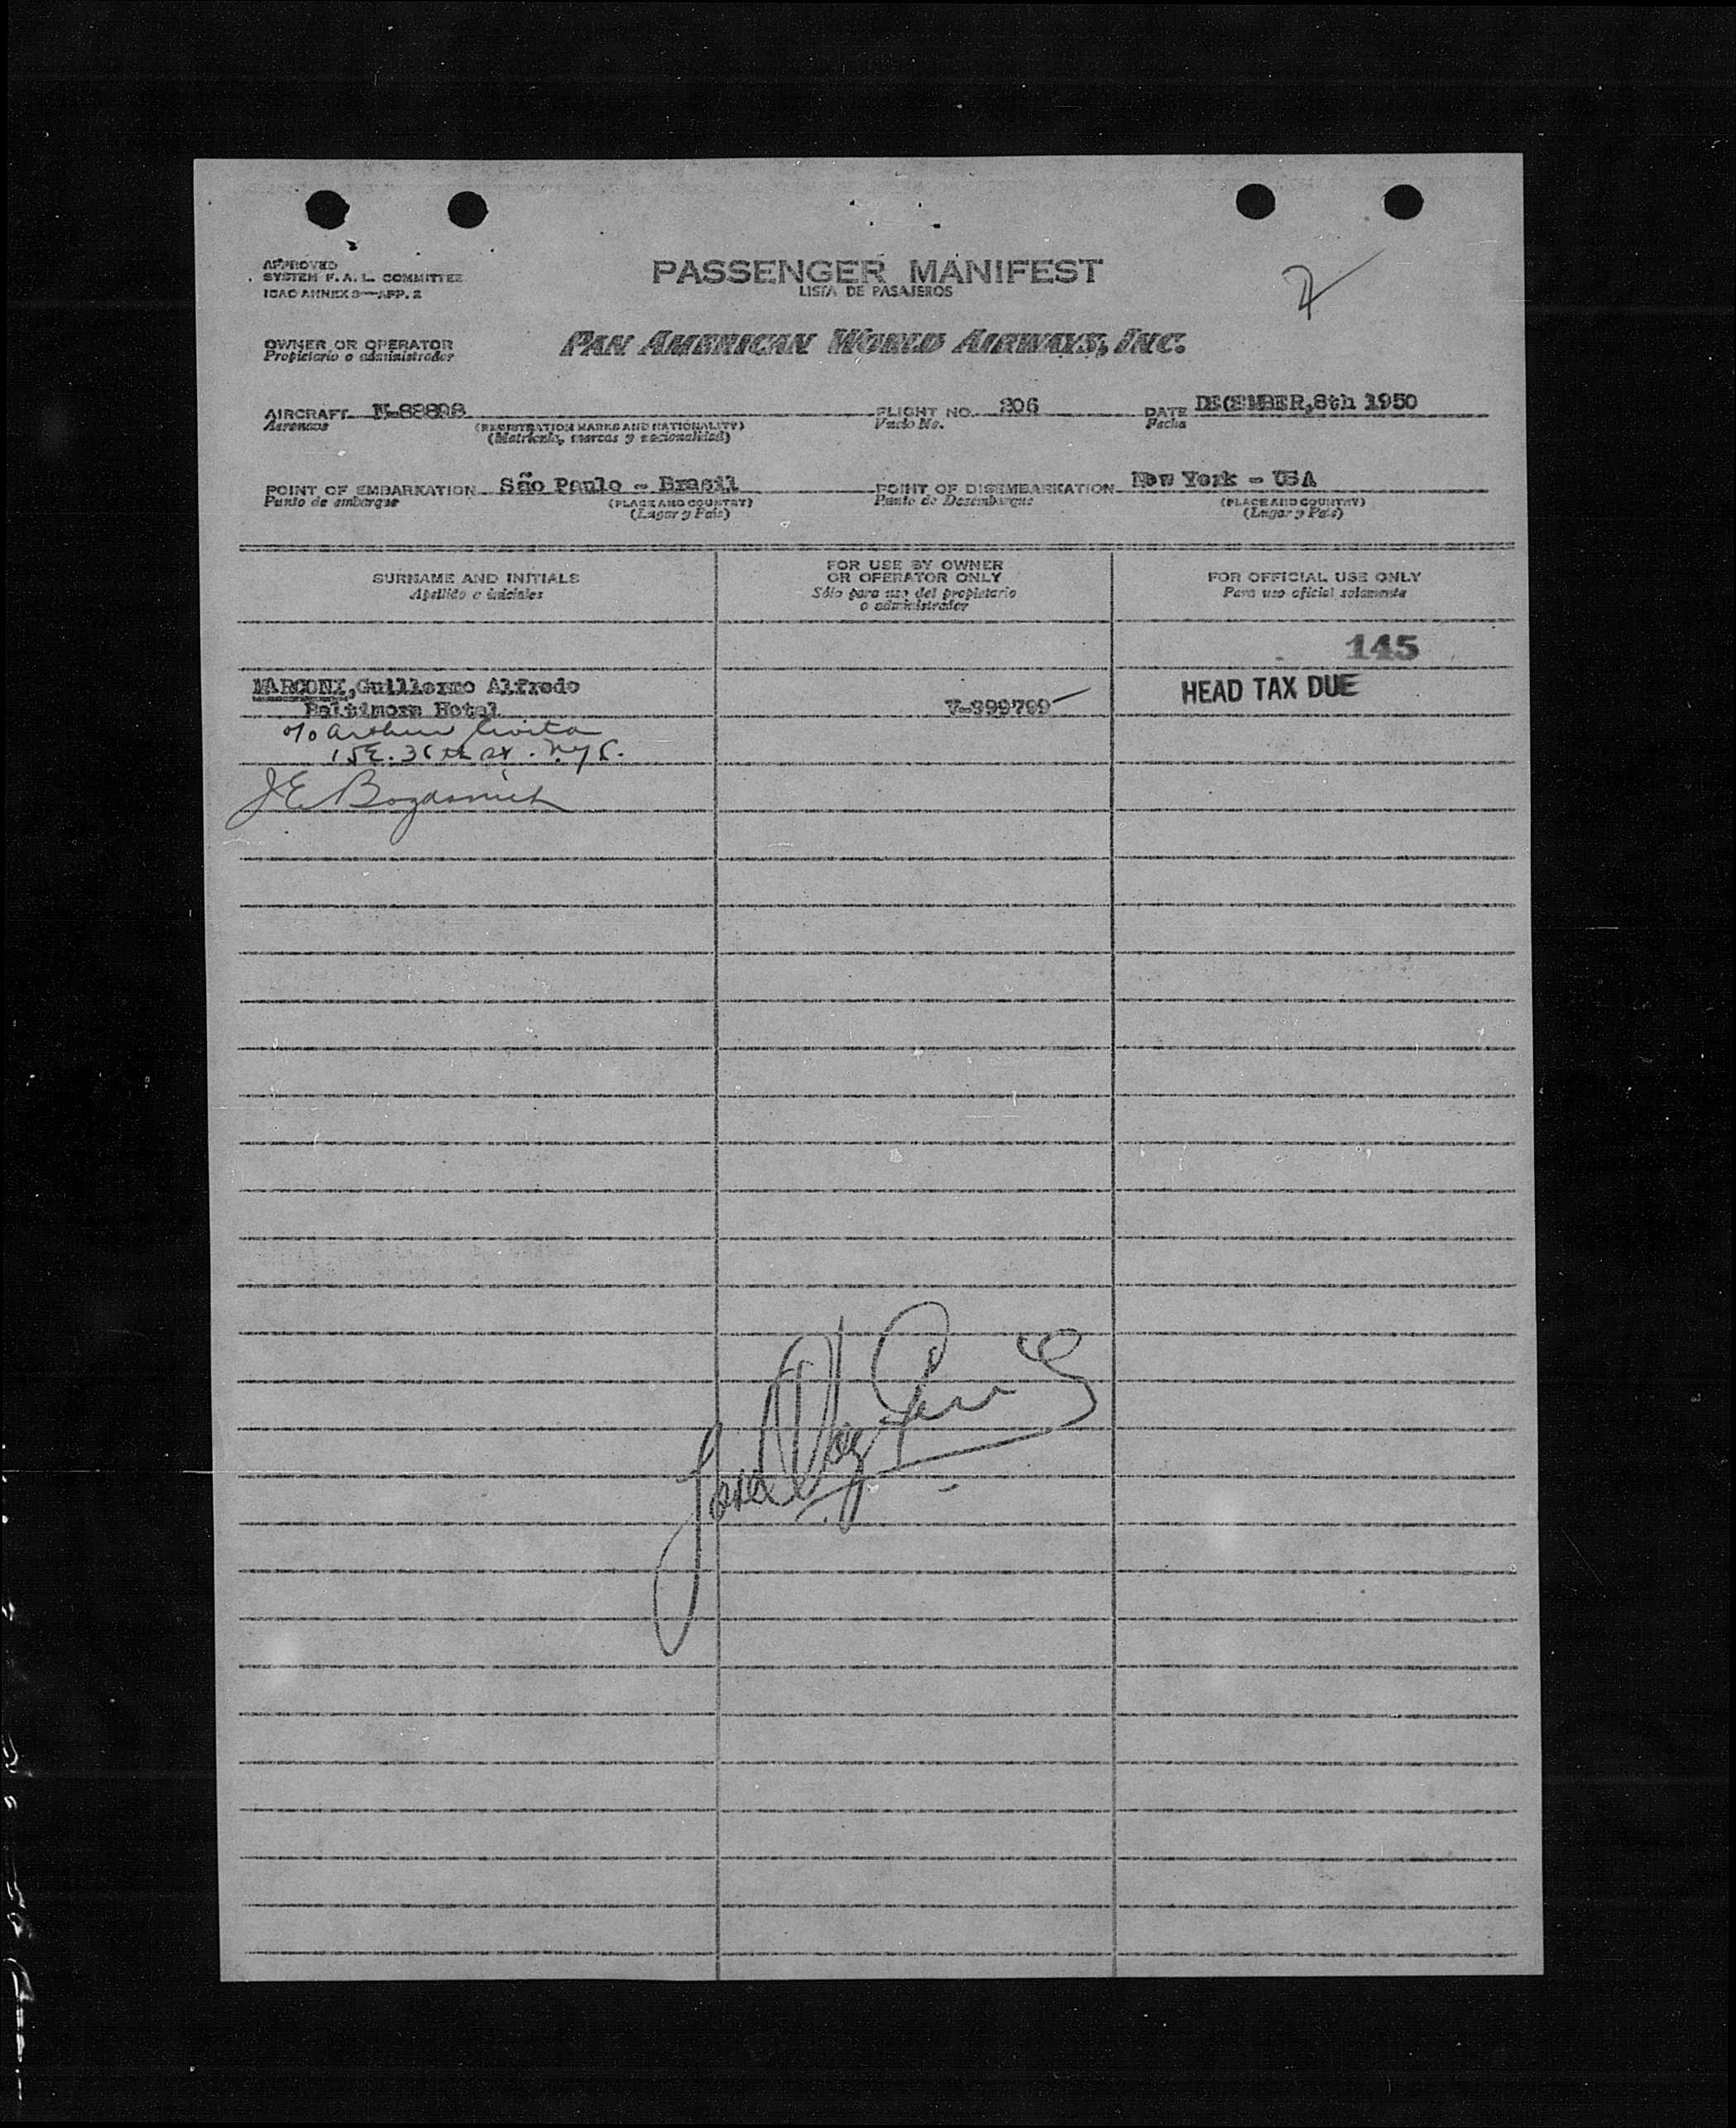 APPROVED
SYSTEM F. A. L. COMMITTEE
ICAO ANNEX 9—APP. 2
PASSENGER MANIFEST
LISTA DE PASAJEROS
2
OWNER OR OPERATOR
Propietario o administrador
PAN AMERICAN WORLD AIRWAYS, INC.
AIRCRAFT N-88898 FLIGHT NO. 206 DATE DECEMBER,8th 1950
Aeronave (REGISTRATION MARKS AND NATIONALITY) Vuelo No. Fecha
(Matrícula, marcas y nacionalidad)
POINT OF EMBARKATION São Paulo - Brasil POINT OF DISEMBARKATION New York - USA
Punto de embarque (PLACE AND COUNTRY) Punto de Desembarque (PLACE AND COUNTRY)
(Lugar y País) (Lugar y País)
SURNAME AND INITIALS
Apellido e iniciales
FOR USE BY OWNER
OR OPERATOR ONLY
Sólo para uso del propietario
o administrador
FOR OFFICIAL USE ONLY
Para uso oficial solamente
145
MARCONI,Guillermo Alfredo
HEAD TAX DUE
Baltimore Hotel V-999709
c/o Arthur Civita
15 E. 36th St. NYC.
J E Bogdanich